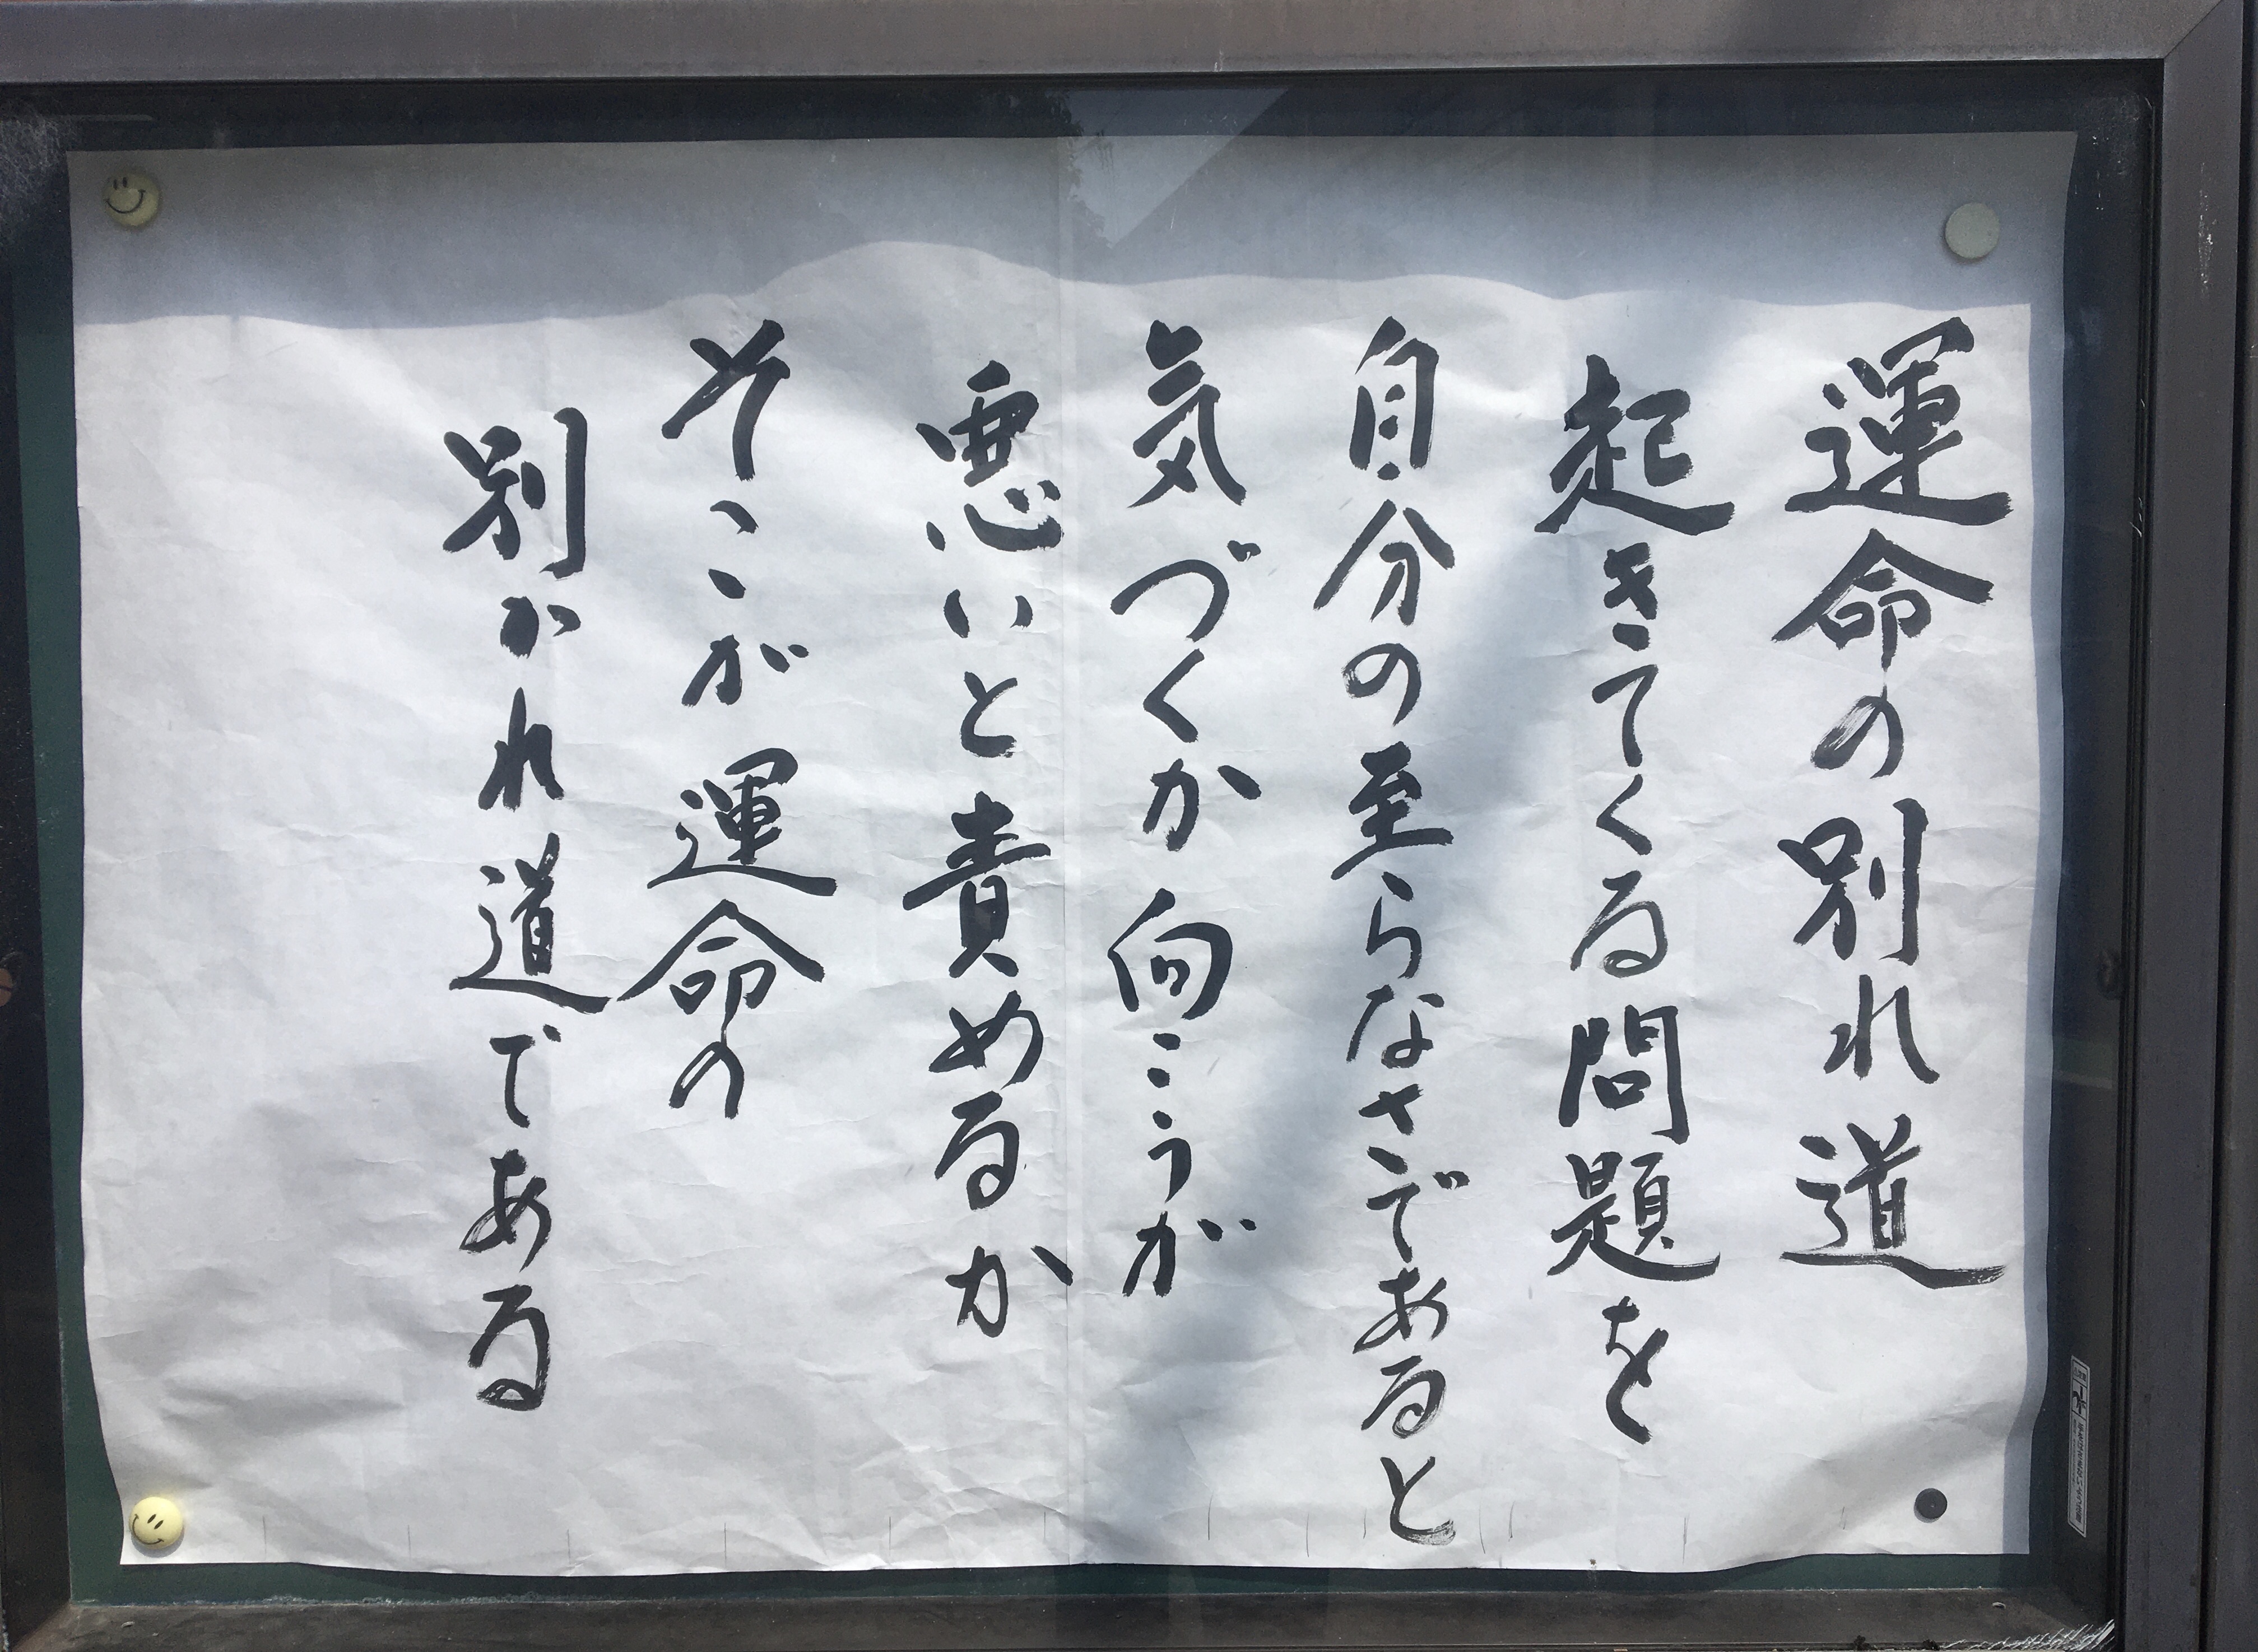 運命の別れ道
起きてくる問題を
自分の至らなさであると
気づくか向こうが
悪いと責めるか
そこが運命の
別かれ道である